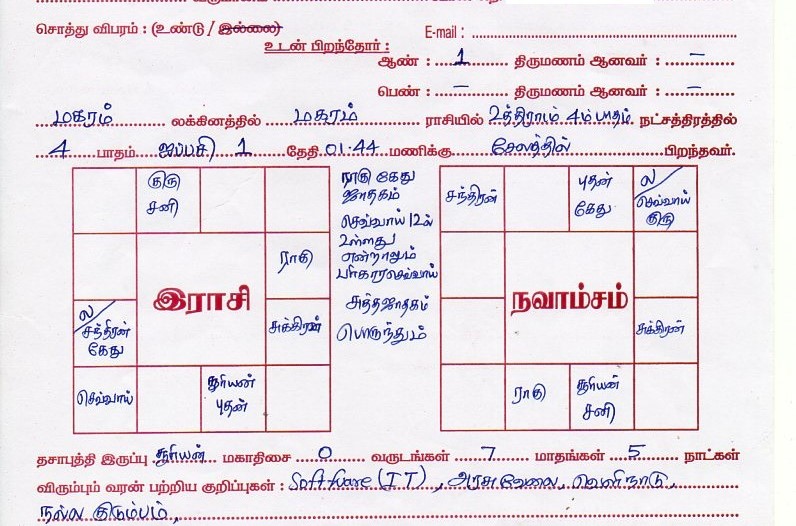 சொத்து விபரம் : (உண்டு / இல்லை) E-mail :
உடன் பிறந்தோர் :
ஆண் : 1 திருமணம் ஆனவர் : –
பெண் : – திருமணம் ஆனவர் : –
மகரம் லக்கினத்தில் மகரம் ராசியில் உத்திராடம் 4ம் பாதம் நட்சத்திரத்தில்
4 பாதம் ஐப்பசி 1 தேதி 01.44 மணிக்கு சேலத்தில் பிறந்தவர்.
குரு
சனி
ராகு
இராசி
ல/
சந்திரன்
கேது
சுக்கிரன்
செவ்வாய்
சூரியன்
புதன்
ராகு கேது
ஜாதகம்
செவ்வாய் 12ல்
உள்ளது
என்றாலும்
பரிகார செவ்வாய்
சுத்தஜாதகம்
பொருந்தும்
சந்திரன்
புதன்
கேது
ல/
செவ்வாய்
குரு
நவாம்சம்
சுக்கிரன்
ராகு
சூரியன்
சனி
தசாபுத்தி இருப்பு சூரியன் மகாதிசை 0 வருடங்கள் 7 மாதங்கள் 5 நாட்கள்
விரும்பும் வரன் பற்றிய குறிப்புகள் : Software (IT), அரசு வேலை, வெளிநாடு,
நல்ல குடும்பம்,